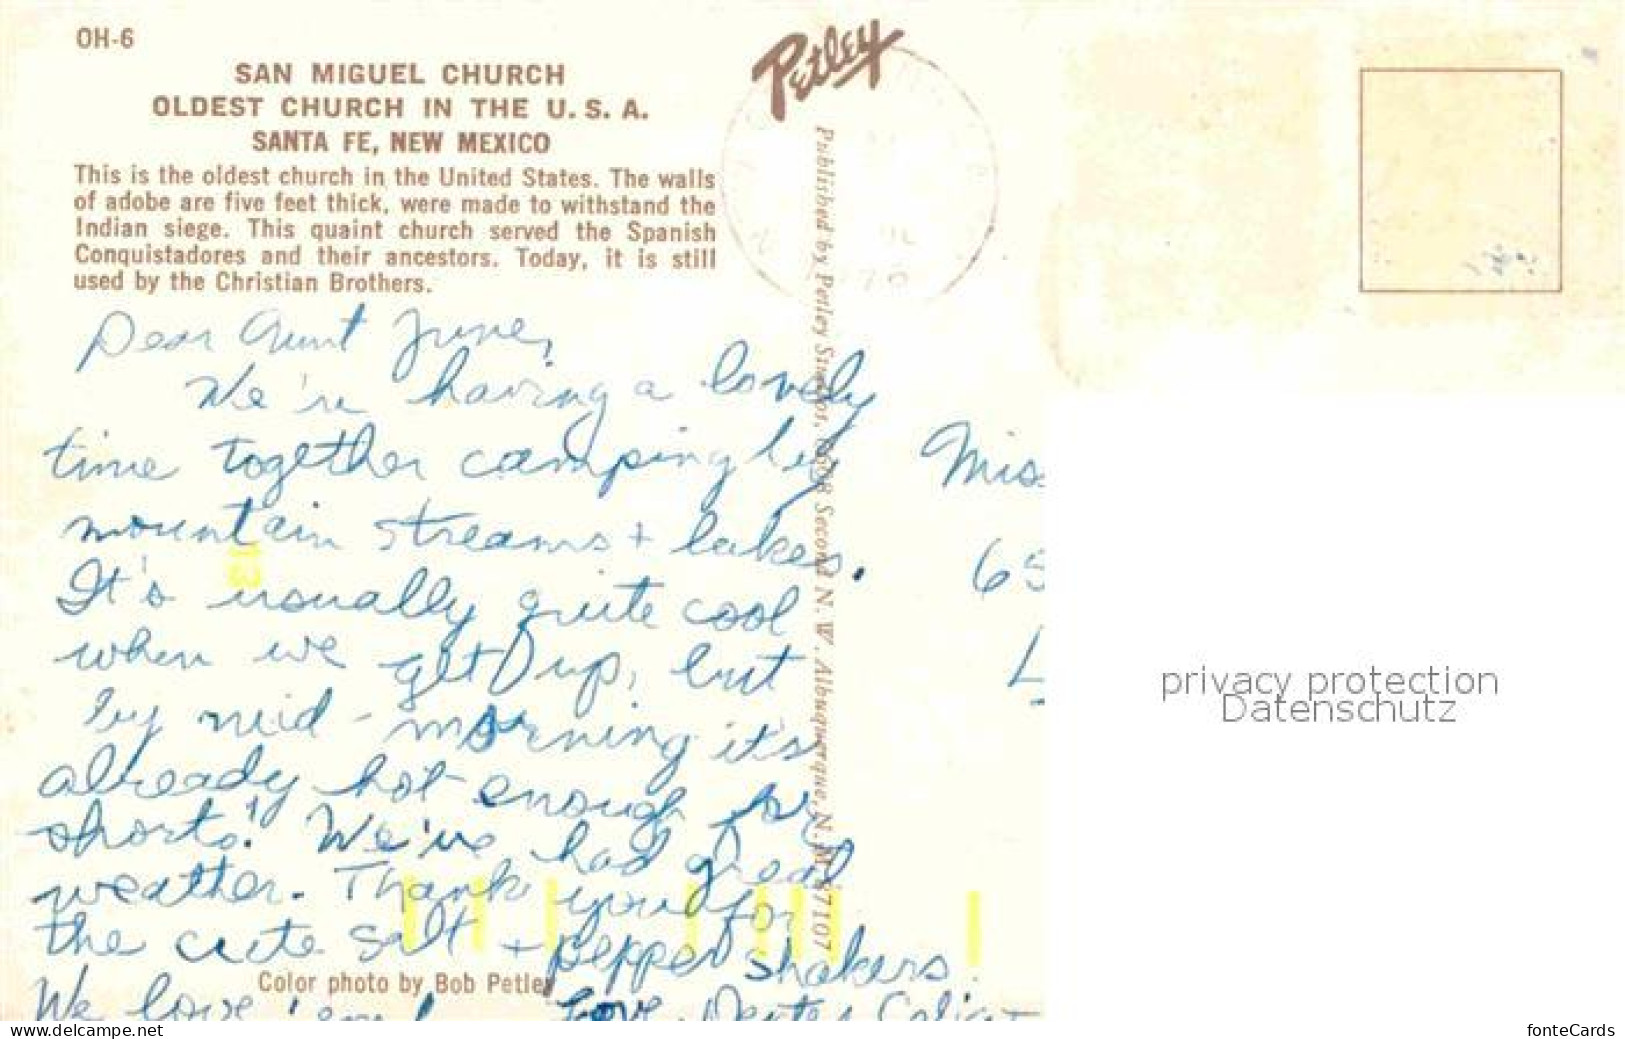 OH-6
SAN MIGUEL CHURCH
OLDEST CHURCH IN THE U. S. A.
SANTA FE, NEW MEXICO
This is the oldest church in the United States. The walls
of adobe are five feet thick, were made to withstand the
Indian siege. This quaint church served the Spanish
Conquistadores and their ancestors. Today, it is still
used by the Christian Brothers.
Petley
Published by Petley Studios, Second N. W. Albuquerque, N. M. 87107
Dear Aunt June,
We're having a lovely
time together camping by
mountain streams + lakes.
It's usually quite cool
when we get up, but
by mid-morning it's
already hot enough for
shorts! We've had great
weather. Thank you for
the cute salt + pepper shakers!
We love 'em! Love,
Color photo by Bob Petley
Miss
65
L
privacy protection
Datenschutz
www.delcampe.net
fonteCards